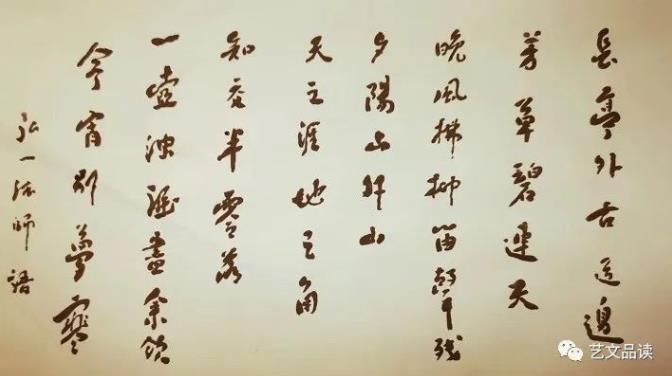 長亭外古道邊
芳草碧連天
晚風拂柳笛聲残
夕陽山外山
天之涯地之角
知交半零落
一壺浊酒盡余欢
今宵別夢寒
弘一法師語
艺文品读